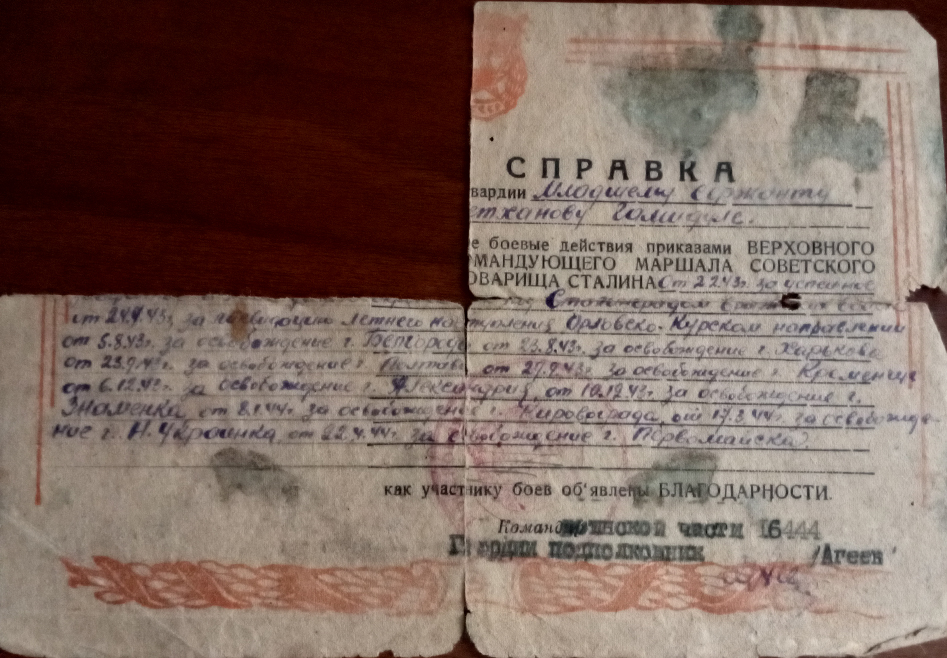 СПРАВКА
вардии Младшему сержанту
етханову Гамидулс.
е боевые действия приказами ВЕРХОВНОГО
МАНДУЮЩЕГО МАРШАЛА СОВЕТСКОГО
ОВАРИЩА СТАЛИНА От 2.2.43г за успешное
Сталинградом
за ликвидацию летнего наступления Орловско-Курском направлении
от 5.8.43г. за освобождение г. Белгорода от 23.8.43г. за освобождение г. Харькова
от 23.9.43г. за освобождение г. Полтава от 29.9.43г. за освобождение г. Кременчуг
от 6.12.43г. за освобождение г. Александрия, от 10.12.43г. за освобождение г.
Знаменка, от 8.1.44г. за освобождение г. Кировограда, от 17.3.44г. за освобожде-
ние г. Н. Украинка, от 22.4.44г. за освобождение г. Первомайска
как участнику боев об'явлены БЛАГОДАРНОСТИ.
части 16444
Гвардии подполковник /Агеев